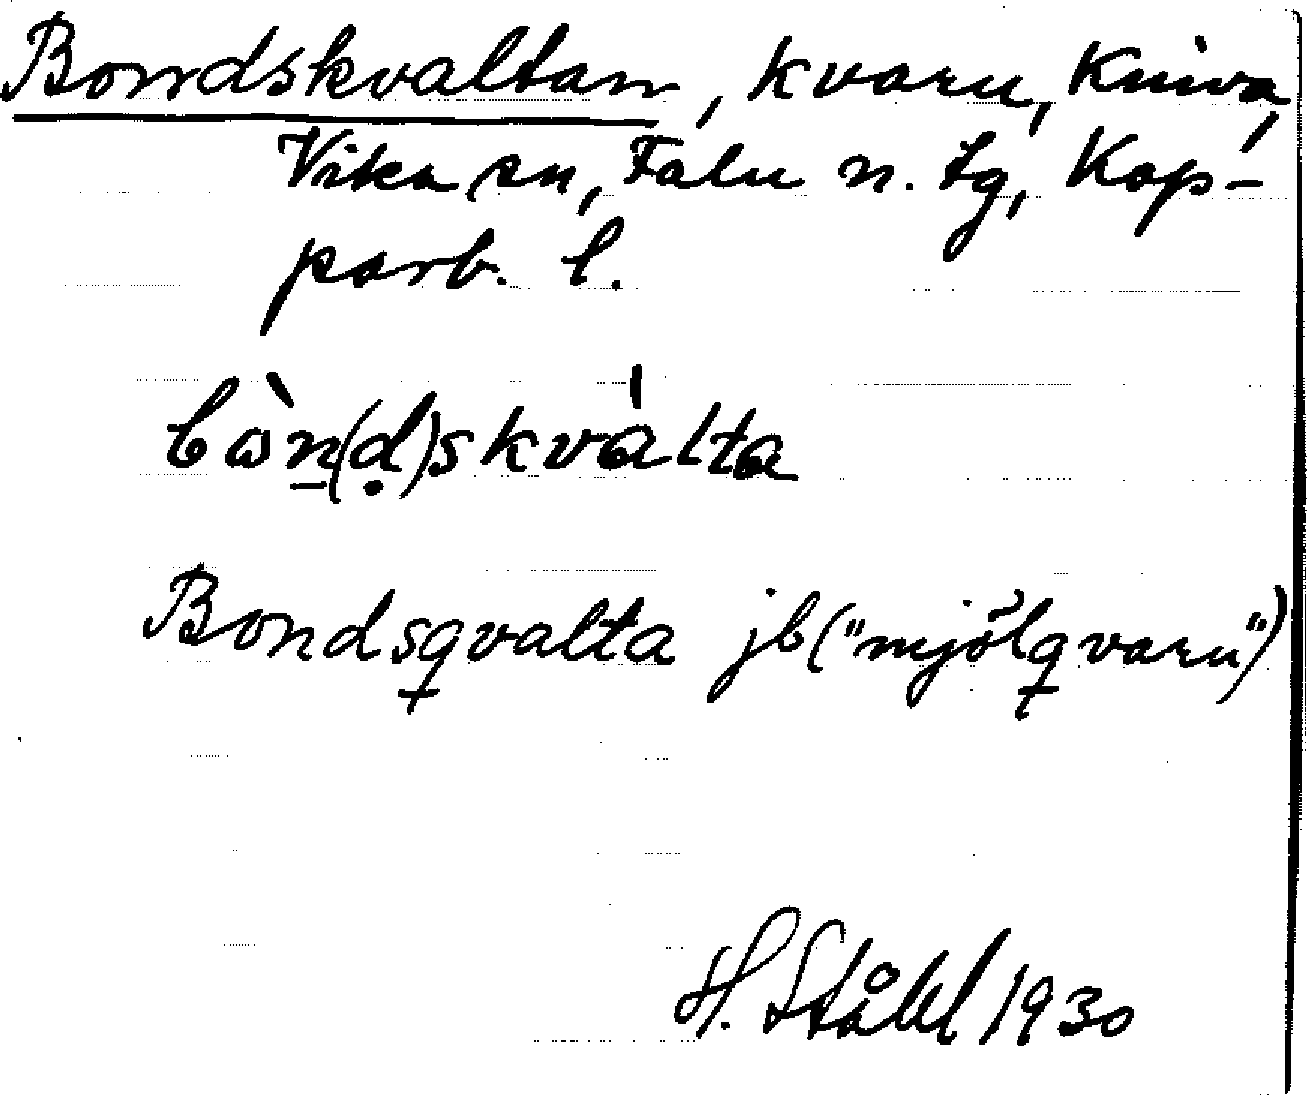 Bondskvaltan, kvarn, Kniva,
Vika sn, Falu n. tg, Kop-
parb. l.
bὼn̠(ḍ)skvàlta
Bondsqvalta jb ("mjölqvarn")
H. Ståhl 1930